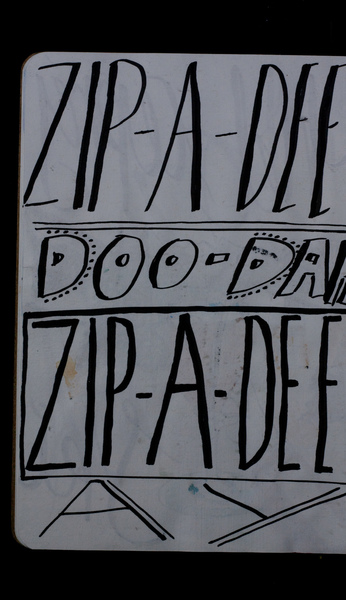 ZIP-A-DEE
DOO-DAH
ZIP-A-DEE
AY